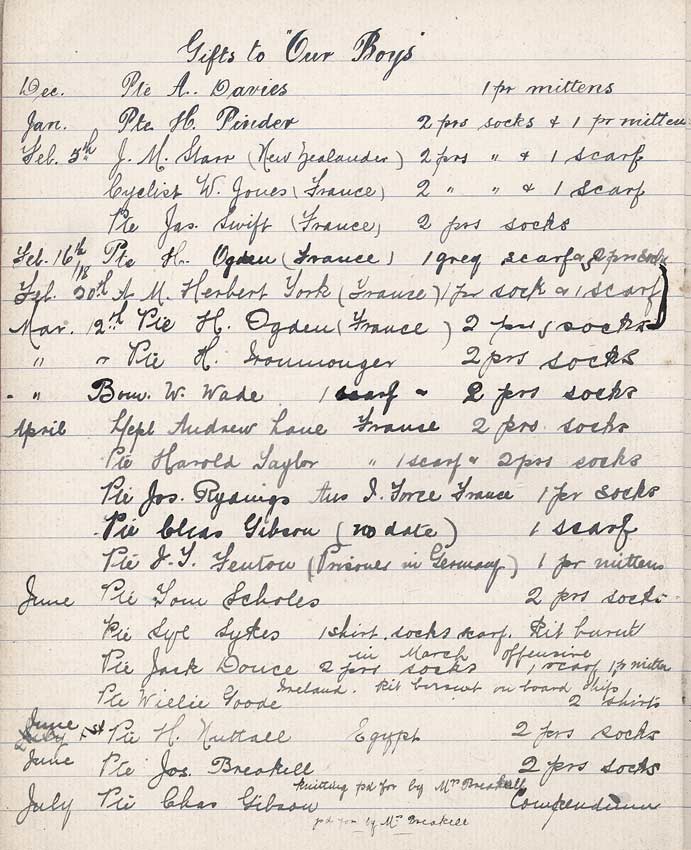 Gifts to "Our Boys"
Dec. Pte A. Davies 1 pr mittens
Jan. Pte H. Pinder 2 prs socks & 1 pr mittens
Feb. 5th J. M. Starr (New Zealander) 2 prs " & 1 scarf
Cyclist W. Jones (France) 2 " " & 1 scarf
Pte Jas. Swift (France) 2 prs socks
Feb. 16th/18 Pte H. Ogden (France) 1 grey scarf & 2 prs socks
Feb. 20th A. M. Herbert York (France) 1 pr sock & 1 scarf
Mar. 12th Pte H. Ogden (France) 2 prs socks
" " Pte H. Ironmonger 2 prs socks
" Bom. W. Wade 1 scarf & 2 prs socks
April Andrew Lane France 2 prs socks
Pte Harold Taylor " 1 scarf & 2 prs socks
Pte Jos. Rydings Aus I. Force France 1 pr socks
Pte Chas Gibson (no date) 1 scarf
Pte J. T. Fenton (Prisoner in Germany) 1 pr mittens
June Pte Tom Scholes 2 prs socks
Pte Syl Sykes 1 shirt. socks scarf. Kit burnt
in March offensive
Pte Jack Douce 2 prs socks 1 scarf 1 pr mitten
Ireland. Kit on board ship
Pte Willie Goode 2 shirts
June 1st Pte H. Nuttall Egypt 2 prs socks
June Pte Jos. Breakell 2 prs socks
knitting pd for by Mrs Breakell
July Pte Chas Gibson Compendium
pd for by Mrs Breakell